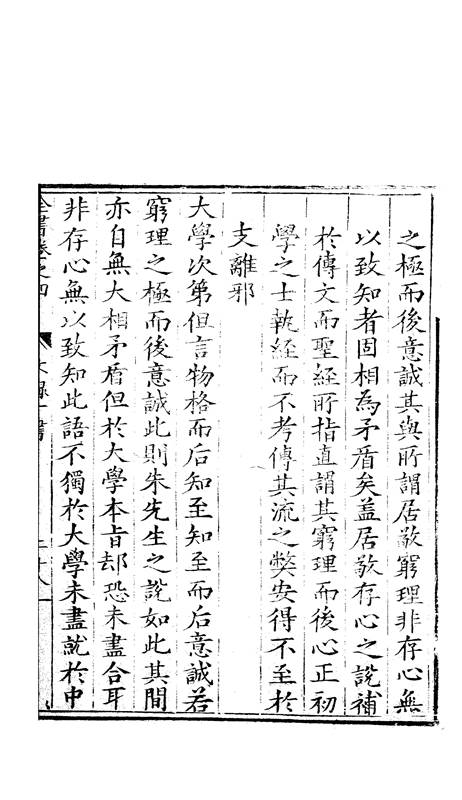 之極而後意誠其與所謂居敬窮理非存心無
以致知者固相為矛盾矣蓋居敬存心之說補
於傳文而聖經所指直謂其窮理而後心正初
學之士執經而不考傳其流之弊安得不至於
支離邪
大學次第但言物格而后知至知至而后意誠若
窮理之極而後意誠此則朱先生之說如此其間
亦自無大相矛盾但於大學本旨却恐未盡合耳
非存心無以致知此語不獨於大學未盡就於中
全書卷之四 文錄一 書